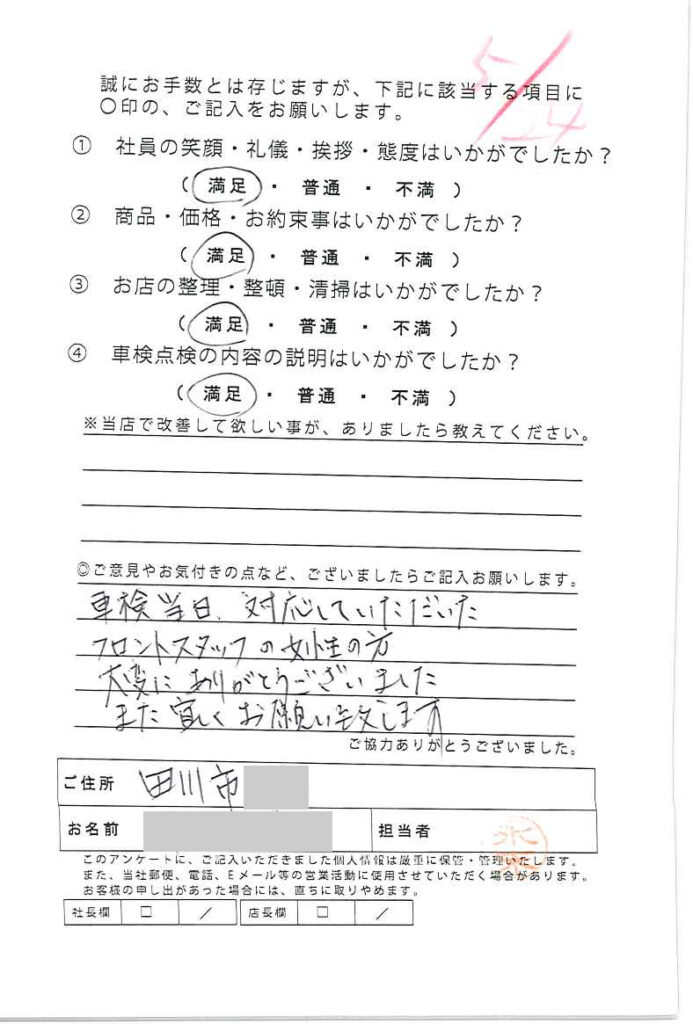 5/24
誠にお手数とは存じますが、下記に該当する項目に
〇印の、ご記入をお願いします。
① 社員の笑顔・礼儀・挨拶・態度はいかがでしたか？
( 満足 ・ 普通 ・ 不満 )
② 商品・価格・お約束事はいかがでしたか？
( 満足 ・ 普通 ・ 不満 )
③ お店の整理・整頓・清掃はいかがでしたか？
( 満足 ・ 普通 ・ 不満 )
④ 車検点検の内容の説明はいかがでしたか？
( 満足 ・ 普通 ・ 不満 )
※当店で改善して欲しい事が、ありましたら教えてください。
◎ご意見やお気付きの点など、ございましたらご記入お願いします。
車検当日、対応していただいた
フロントスタッフの女性の方
大変にありがとうございました
また宜しくお願い致します
ご協力ありがとうございました。
ご住所 田川市
お名前 担当者
このアンケートに、ご記入いただきました個人情報は厳重に保管・管理いたします。
また、当社郵便、電話、Eメール等の営業活動に使用させていただく場合があります。
お客様の申し出があった場合には、直ちに取りやめます。
社長欄 □ / 店長欄 □ /